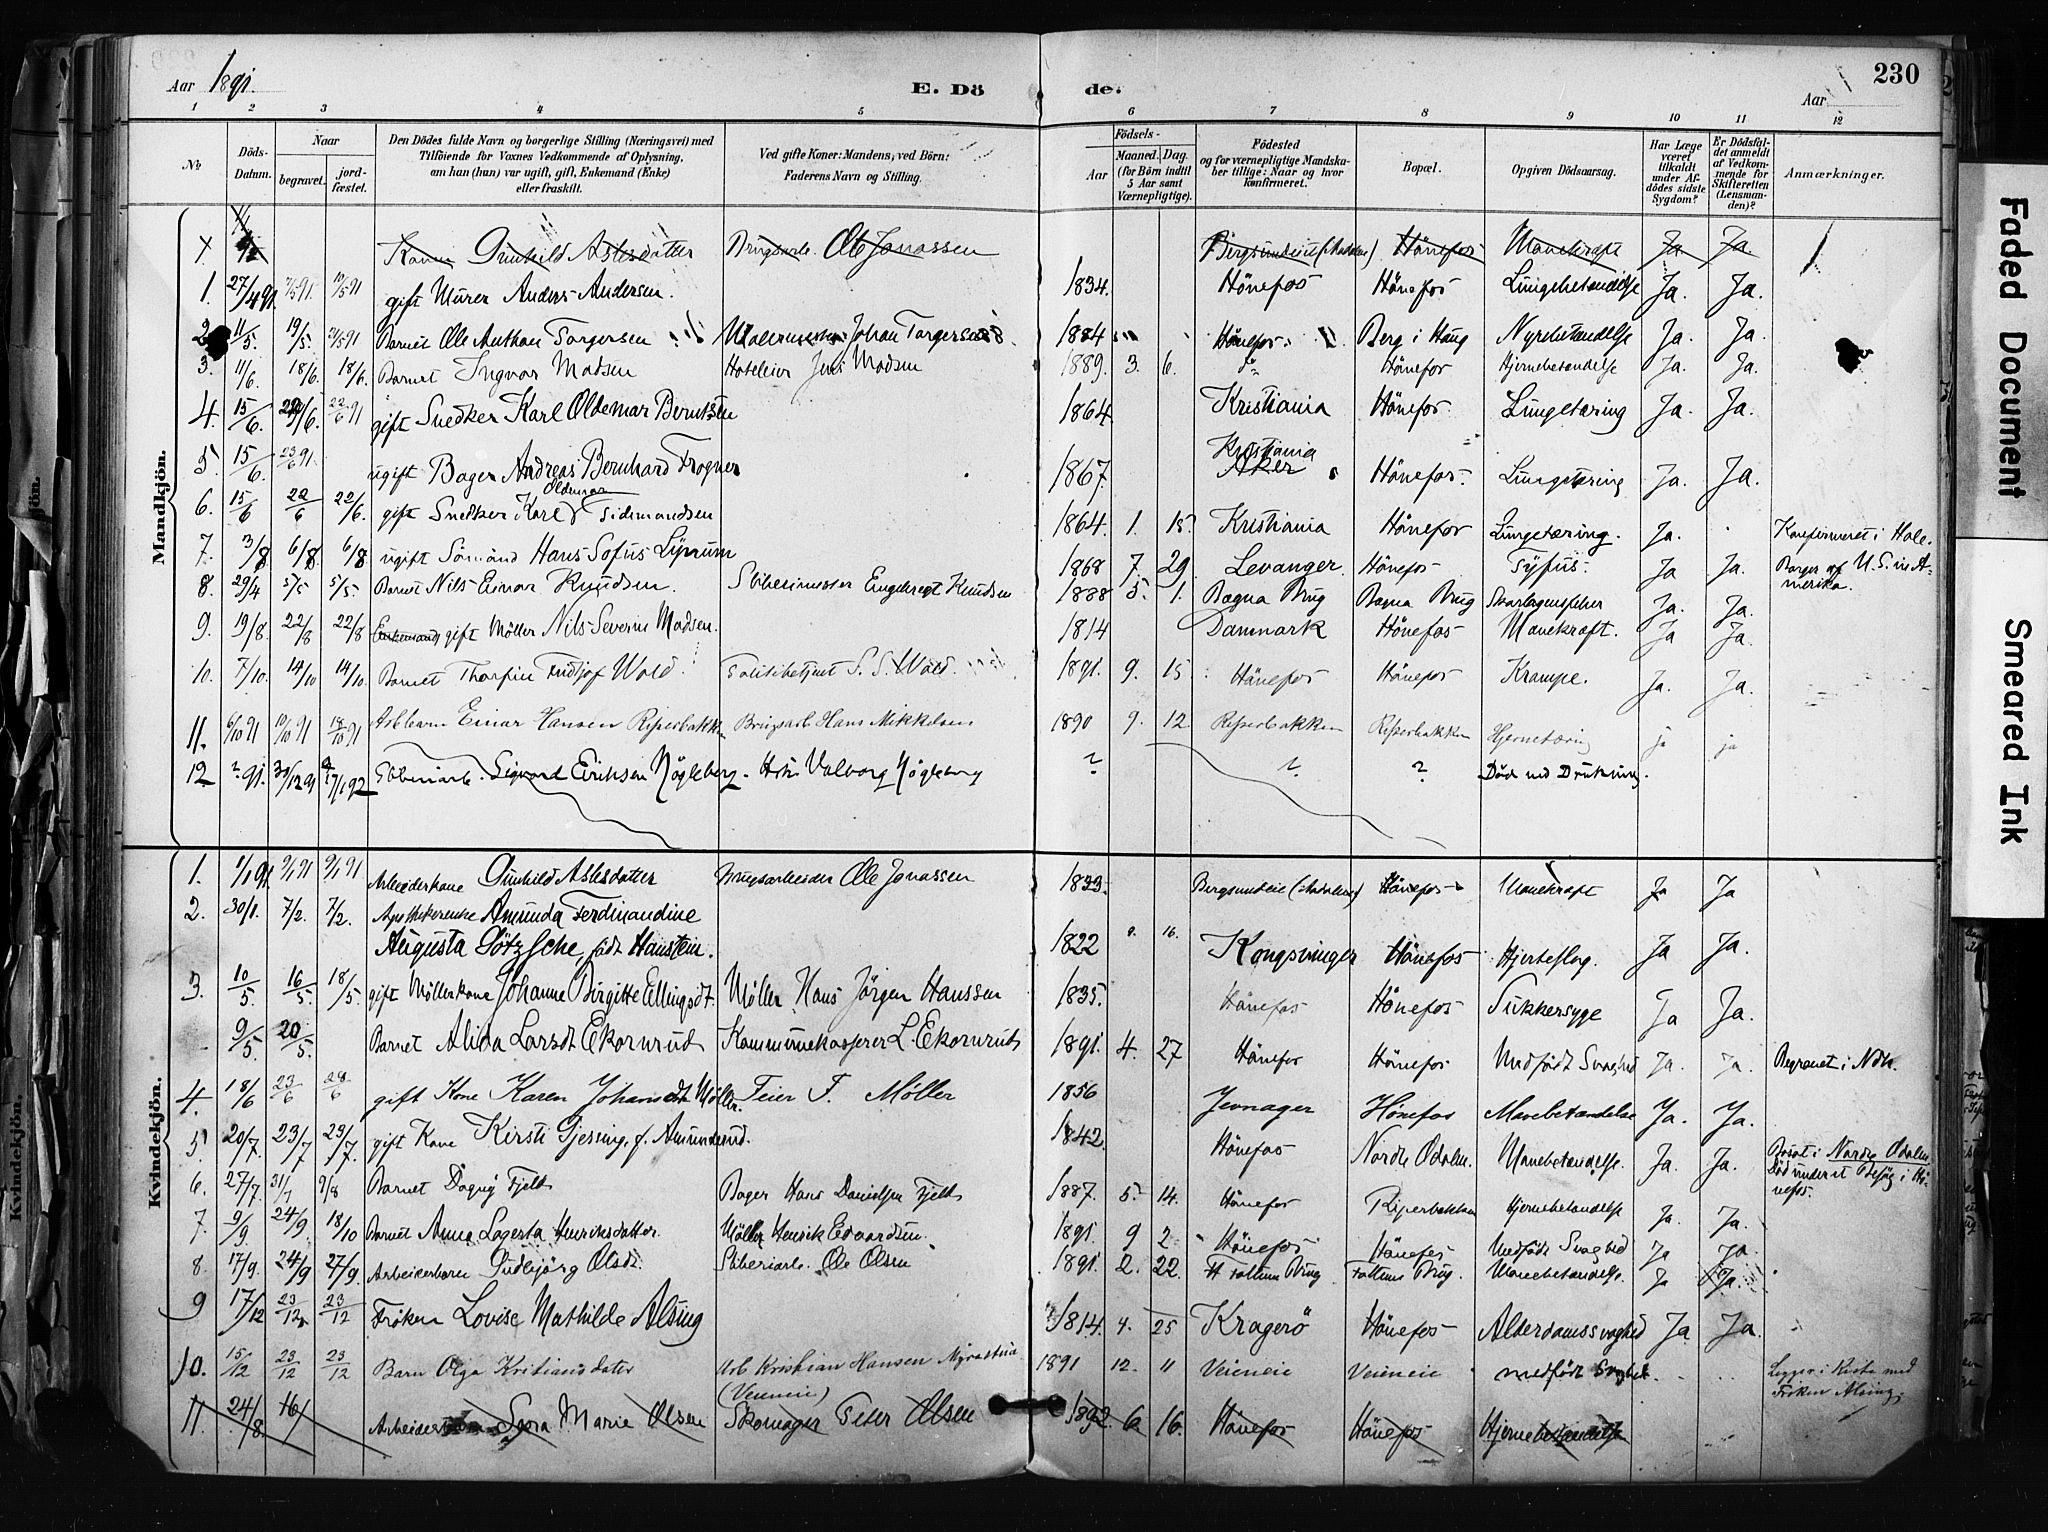 Aar 1891.
E. Döde.
Aar
230
1 2 3 4 5 6 7 8 9 10 11 12
No
Döds-Datum.
Naar
begravet. jordfæstet.
Den Dödes fulde Navn og borgerlige Stilling (Næringsvei) med Tilföiende for Voxnes Vedkommende af Oplysning, om han (hun) var ugift, gift, Enkemand (Enke) eller fraskilt.
Ved gifte Koner: Mandens; ved Börn: Faderens Navn og Stilling.
Födsels-
Aar Maaned. Dag.
(for Börn indtil 5 Aar samt Værnepligtige).
Födested og for værnepligtige Mandskaber tillige: Naar og hvor konfirmeret.
Bopæl.
Opgiven Dödsaarsag.
Har Læge været tilkaldt under Afdödes sidste Sygdom?
Er Dödsfaldet anmeldt af Vedkommende for Skifteretten (Lensmanden)?
Anmærkninger.
Mandkjön.
Kone Gunhild Aslesdatter Brugsarb. Ole Jonassen Hönefos Mavekræft Ja Ja
1. 27/4 91. 19/5 91 gift Murer Anders Andersen. 1834. Hönefos Hönefos Lungebetændelse Ja. Ja.
2 11/5 19/5 Barnet Ole Anthon Torgersen Johan Torgersen 1884 Hönefos Berg i Haug Nyrebetændelse Ja. Ja.
3. 11/6. 18/6. 18/6. Barnet Ingvar Madsen Hoteleier Jens Madsen 1889. 3. 6. do Hönefos Hjernebetændelse Ja. Ja.
4. 15/6. 22/6 91 gift Snedker Karl Oldemar Berntsen 1864 Kristiania Hönefos. Lungetæring Ja. Ja.
5. 15/6. 23/6 91. ugift Bager Andreas Bernhard Frogner 1867. Kristiania Aker Hönefos. Lungetæring Ja. Ja.
6. 15/6 22/6 22/6. gift Snedker Karl Oldemar Tidemandsen 1864. 1. 15. Kristiania Hönefos Lungetæring. Ja. Konfirmeret i Hole.
7. 3/8 6/8 6/8 ugift Sömand Hans Sofus Lijnum 1868 7. 29. Levanger. Hönefos Tyfus. Ja Ja. Borger af U.S. in Amerika.
8. 29/4 5/5 5/5. Barnet Nils Einar Knudsen. Engebregt Knudsen 1888 5. 1. Bægna Brug Bægna Brug Skarlagensfeber Ja. Ja.
9. 19/8. 22/8 22/8 Enkemand gift Möller Nils Severin Madsen. 1814 Danmark Hönefos Mavekræft. Ja Ja.
10. 7/10. 14/10 14/10. Barnet Thorfin Fridtjof Wold. Politibetjent S. S. Wold. 1891. 9. 15 Hönefos Hönefos Krampe. Ja. Ja.
11. 6/10 91 10/10 91 18/10 91 Arbbarn Einar Hansen Ripserbakken Brugsarb Hans Mikkelsen 1890 9. 12 Ripserbakken Ripserbakken Hjernetæring ja ja
12 ? 91. 30/12 91 17/1 92 Sliberiarb. Sigvard Eriksen Nögleberg. Valborg Nögleberg ? ? ? Död ved Drukning.
Kvindekjön.
1. 1/1 91. 9/1 91 9/1 91 Arbeiderkone Gunhild Aslesdatter Brugsarbeider Ole Jonassen 1833. Bergsundeie (Aadalen) Hönefos Mavekræft Ja Ja
2. 30/1. 7/2. 7/2. Apothekerenke Amunda Ferdinandine
Augusta Götzsche, födt Hanstein. 1822 9. 16. Kongsvinger Hönefos Hjerteslag. Ja Ja.
3. 10/5. 16/5 18/5. gift Möllerkone Johanne Birgitte Ellingsdt. Möller Hans Jörgen Hanssen 1835. Hönefos Hönefos Sukkersyge Ja Ja.
9/5. 20/5. Barnet Alida Larsdt Ekornrud Kommunekasserer L. Ekornrud 1891. 4. 27 Hönefos Hönefos Medfödt Svaghed Ja. Ja. Begravet i Ndh.
4. 18/6 23/6 28/6 gift Kone Karen Johansdt Möller. Feier F. Møller 1856 Jevnager Hönefos Mavebetændelse Ja. Ja.
5 20/7 23/7 23/7. gift Kone Kirsti Gjessing, f. Amundsrud. 1842 Hönefos Nordre Odalen. Mavebetændelse. Ja. Ja. Bosat i Nordre Odalen Död under et Besög i Hönefos.
6. 27/7. 31/7 9/8 Barnet Dagny Fjeld Bager Hans Danielsen Fjeld 1887. 5. 14. Hönefos Ripserbakken Hjernebetændelse Ja. Ja.
7. 9/9. 24/9. 18/10 Barnet Anna Lagerta Henriksdatter. Möller Henrik Edvardsen. 1891. 9 2 Hönefos Hönefos Medfödt Svaghed Ja Ja
8. 17/9. 24/9 27/9. Arbeiderbarn Gudbjörg Olsdt. Sliberiarb. Ole Olsen 1891. 2. 22. Follum Brug Follum Brug. Mavebetændelse. Ja Ja.
9 17/12 23/12 23/12 Fröken Lovise Mathilde Alsing 1814. 4. 25 Kragerö Hönefos Alderdomssvaghed Ja. Ja.
10. 15/12 23/12 23/12 Barn Olga Kristiansdater Arb Kristian Hansen (Veieneie) 1891 12. 11 Veieneie Veieneie medfödt Svaghed Ligger i Kiste med Fröken Alsing.
11 24/8 Sara Marie Olsen Skomager Peter Olsen 1892. 6 16. Hönefos Hönefos Hjernebetændelse
Faded Document
Smeared Ink
Kvindekjön.